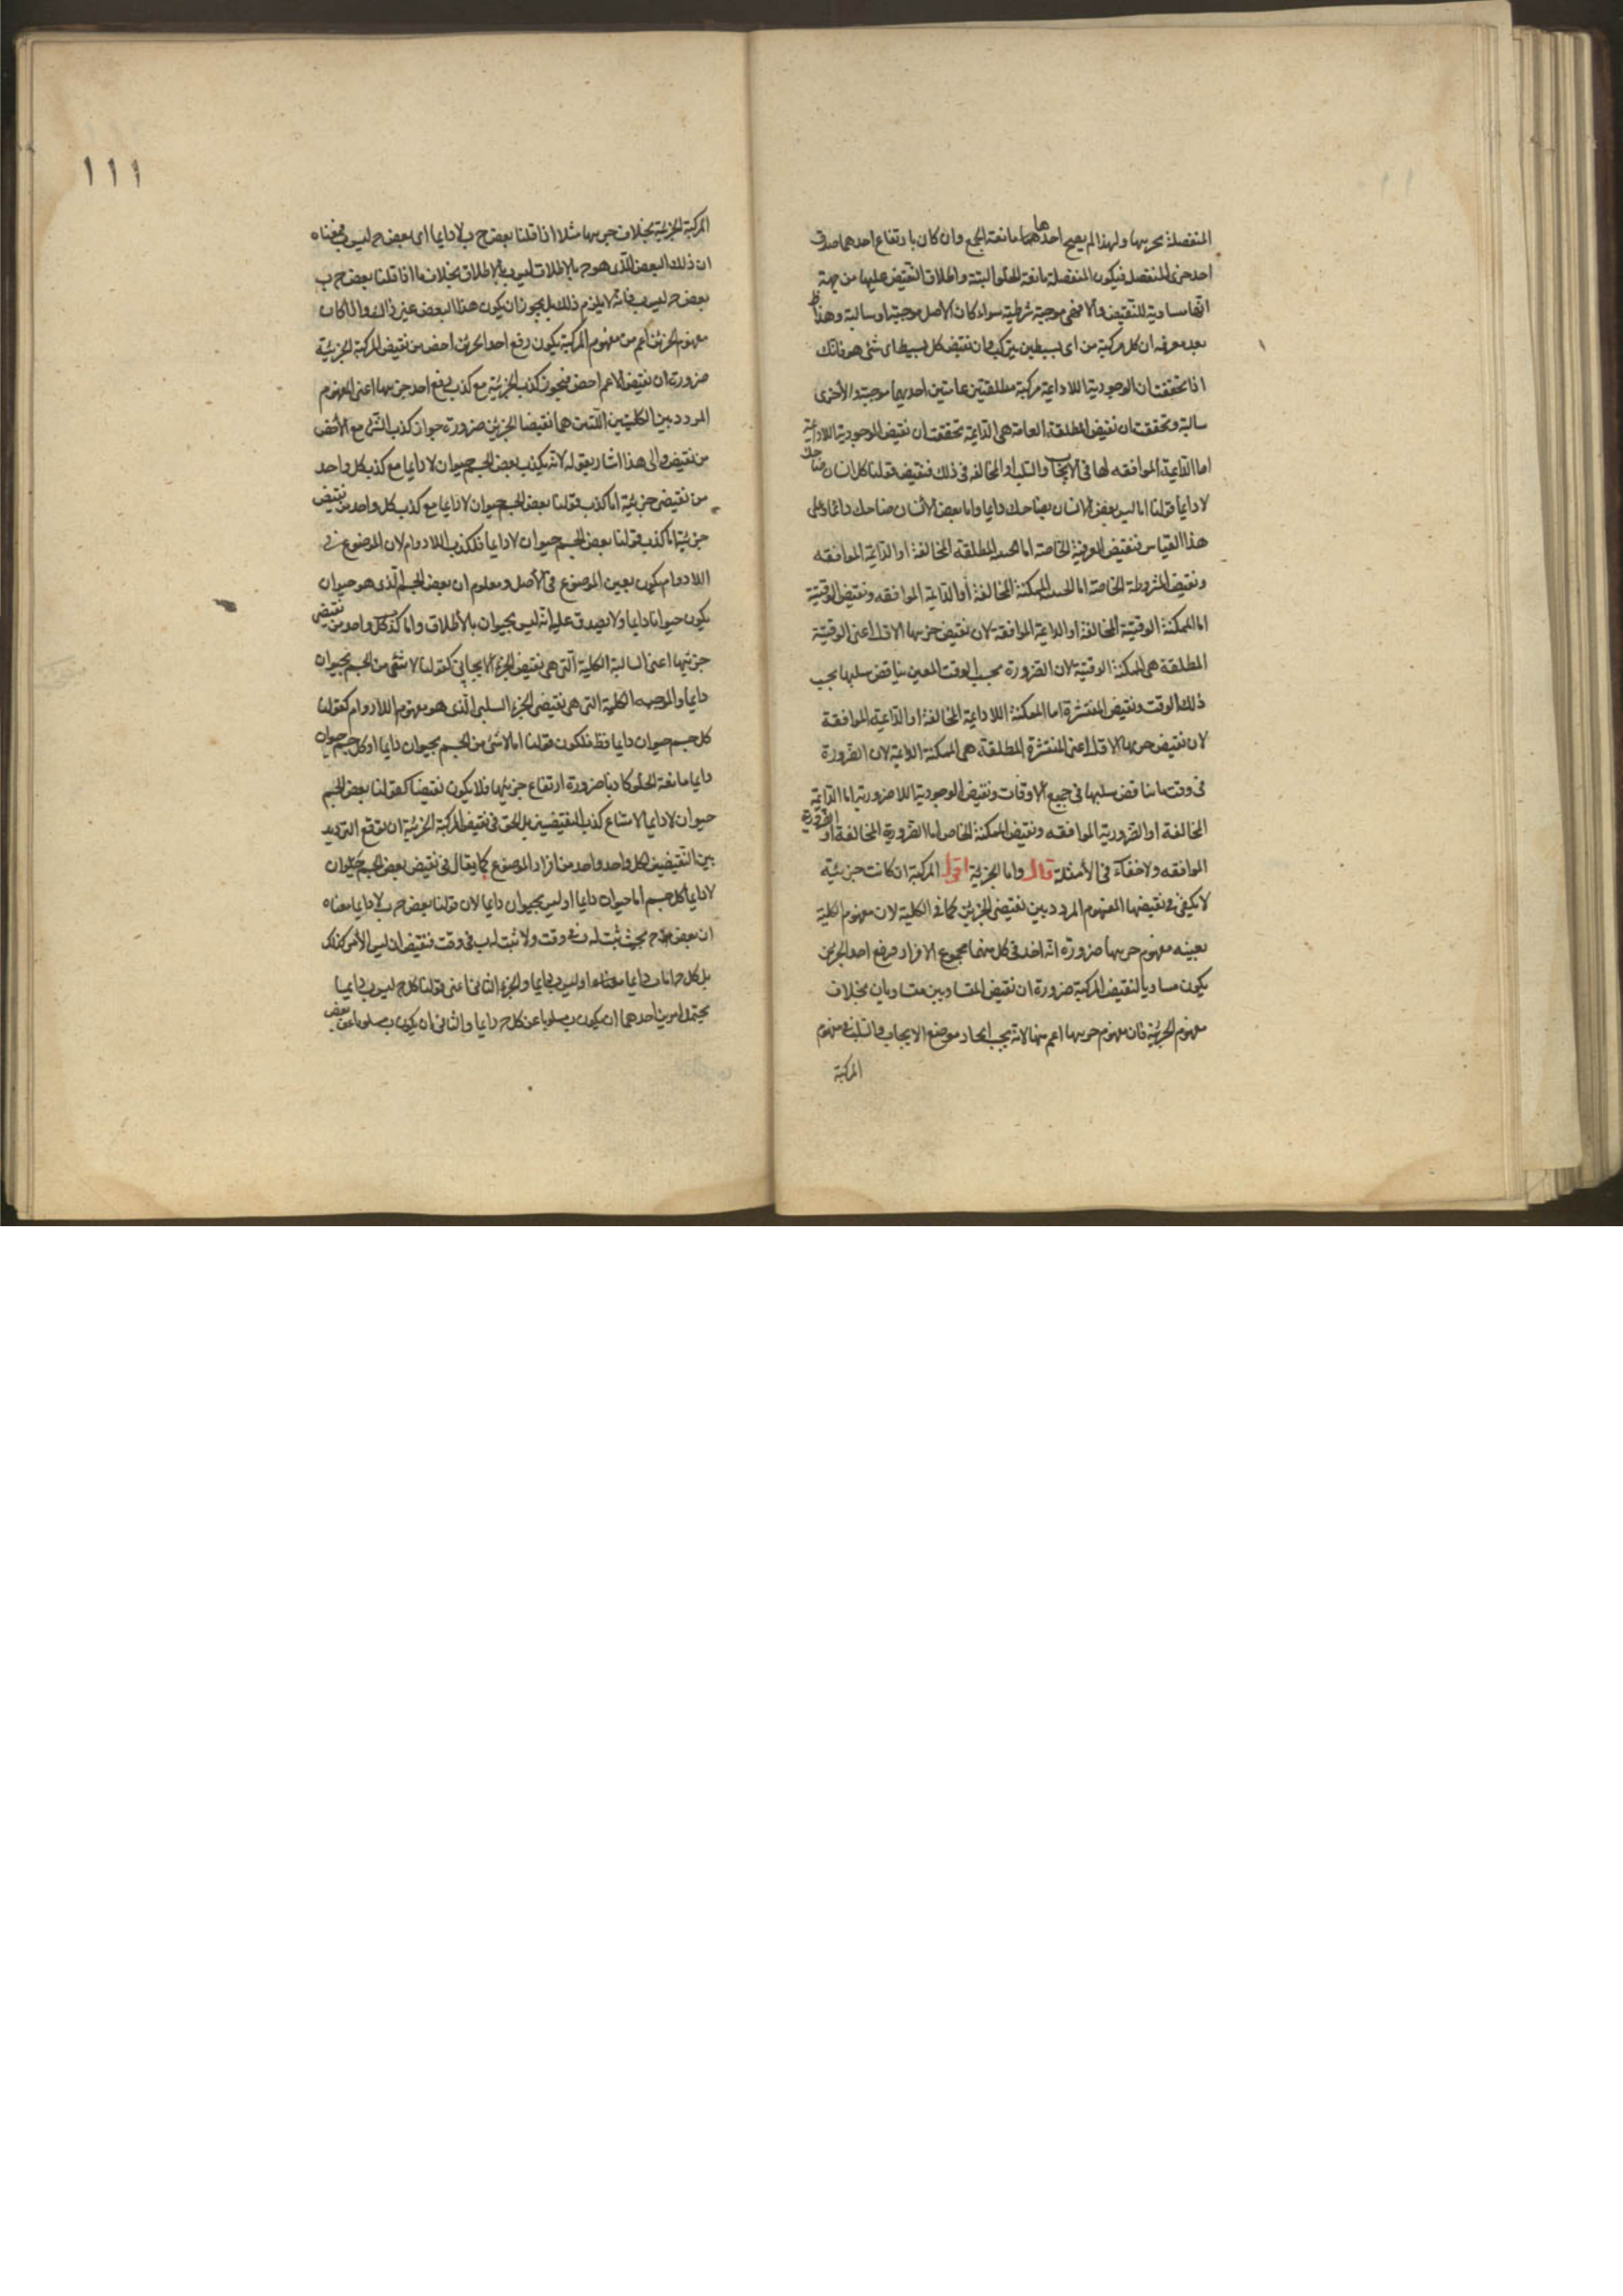 المنفصلة بجزيها ولهذا لم يصح احدهما مانعة الجمع وان كان بارتفاع احدهما صدق
احد جزئى المنفصل فيكون المنفصلة مانعة الخلو البتة واطلاق النقيض عليها من جهة
انها مساوية للنقيض والا فهى موجبة شرطية سواء كان الأصل موجبة او سالبة وهذا ظ
بعد معرفة ان كل مركبة من اى بسيطين يتركب وان نقيض كل بسيط اى شئ هو فانك
اذا تحققت ان الوجودية اللاداعية مركبة مطلقتين عامتين احديهما موجبة والأخرى
سالبة وتحققت ان نقيض المطلقة العامة هى الدايمة تحققت ان نقيض الوجودية اللاداعية
اما الدايمة الموافقه لها فى الايجاب والسلب او المخالفه فى ذلك فنقيض قولنا كل انسان ضاحك
لا دايما قولنا اما ليس بعض الانسان بضاحك دايما واما بعض الأنسان ضاحك دائما وعلى
هذا القياس فنقيض العرفية الخاصة اما الحينية المطلقه المخالفة او الدايمة الموافقه
ونقيض المشروطة الخاصة اما الحينية الممكنة المخالفة أو الدايمة الموافقه ونقيض الوقتية
اما الممكنة الوقتية المخالفة او الدايمة الموافقة لان نقيض جزيها الاول اعنى الوقتية
المطلقة هى الممكنة الوقتية لان الضرورة بحسب الوقت المعين يناقض سلبها بحسب
ذلك الوقت ونقيض المنتشرة اما الممكنة اللاداعية المخالفة او الداعية الموافقة
لان نقيض جزيها الاول اعنى المنتشرة المطلقة هى الممكنة الداعية لان الضرورة
فى وقت ما يناقض سلبها فى جميع الاوقات ونقيض الوجودية اللاضرورية اما الدايمة
المخالفة او الضرورية الموافقه ونقيض الممكنة الخاص اما الضرورية المخالفة أو الضرورية
الموافقه ولا خفآء فى الأمثلة قال واما الجزئية اقول المركبة ان كانت جزئية
لا يكفى فى نقيضها المفهوم المردد بين نقيضى الجزئين كما فى الكلية لان مفهوم الكلية
بعينه مفهوم جزيها ضرورة انه اخد فى كل منهما مجموع الافراد فرفع احد الجزئين
يكون مساويا لنقيض المركبة ضرورة ان نقيض المتساويين متساويان بخلاف
مفهوم الجزئية فان مفهوم جزيها اعم منها لانه يجب اتحاد موضع الايجاب والسلب فى مفهوم
المركبة
١١١
المركبة الجزئية بخلاف جزيها مثلا اذا قلنا بعض ج ب لا دايما اى بعض ج ليس ب فمعناه
ان ذلك البعض الذى هو ب بالاطلاق ليس ب بالاطلاق بخلاف ما اذا قلنا بعض ج ب
بعض ج ليس ب فانه لا يلزم ذلك بل يجوز ان يكون هذا البعض غير ذالك ولما كان
مفهوم الجزئين اعم من مفهوم المركبة يكون رفع احد الجزئين اخص من نقيض المركبة الجزئية
ضرورة ان نقيض الاعم اخص فيجوز كذب الجزئية مع كذب رفع احد جزيها اعنى المفهوم
المردد بين الكليتين اللتين هما نقيضا الجزئين ضرورة جواز كذب الشئ مع الأخص
من نقيضه والى هذا اشار بقوله لانه يكذب بعض الجسم حيوان لا دايما مع كذب كل واحد
من نقيضى جزئية اما كذب قولنا بعض الجسم حيوان لا دايما مع كذب كل واحد من نقيض
جزئية اما كذب قولنا بعض الجسم حيوان لا دايما فلكذب اللادوام لان الموضوع فى
اللادوام يكون بعين الموضوع فى الأصل ومعلوم ان بعض الجسم الذى هو حيوان
يكون حيوانا دايما ولا يصدق عليه انه ليس بحيوان بالأطلاق واما كذب كل واحد من نقيضى
جزئيها اعنى السالبة الكلية التى هى نقيض الجزء الايجابى كقولنا لا شئ من الجسم بحيوان
دايما والموجبه الكلية التى هى نقيض الجزء السلبى الذى هو مفهوم اللادوام كقولنا
كل جسم حيوان دايما فظ فلكون قولنا اما لا شئ من الجسم بحيوان دايما او كل جسم حيوان
دايما مانعة الخلو كاذبا ضرورة ارتفاع جزئيها فلا يكون نقيضا كقولنا بعض الجسم
حيوان لا دايما لامتناع كذب النقيضين بل الحق فى نقيض المركبة الجزئية ان نوقع الترديد
بين النقيضين لكل واحد واحد من افراد الموضوع كما يقال فى نقيض بعض الجسم حيوان
لا دايما كل جسم اما حيوان دايما او ليس بحيوان دايما لان قولنا بعض ج ب لا دايما معناه
ان بعض ج بحيث ثبت له ب فى وقت ولا ثبت له ب فى وقت فنقيضه ان ليس الأمر كذلك
بل كل ج اما ب دايما او ليس ب دايما والجزء الثانى اعنى قولنا كل ج ليس ب دايما
يحتمل امرين احدهما ان يكون ب مسلوبا عن كل ج دايما والثانى ان يكون ب مسلوبا عن بعض